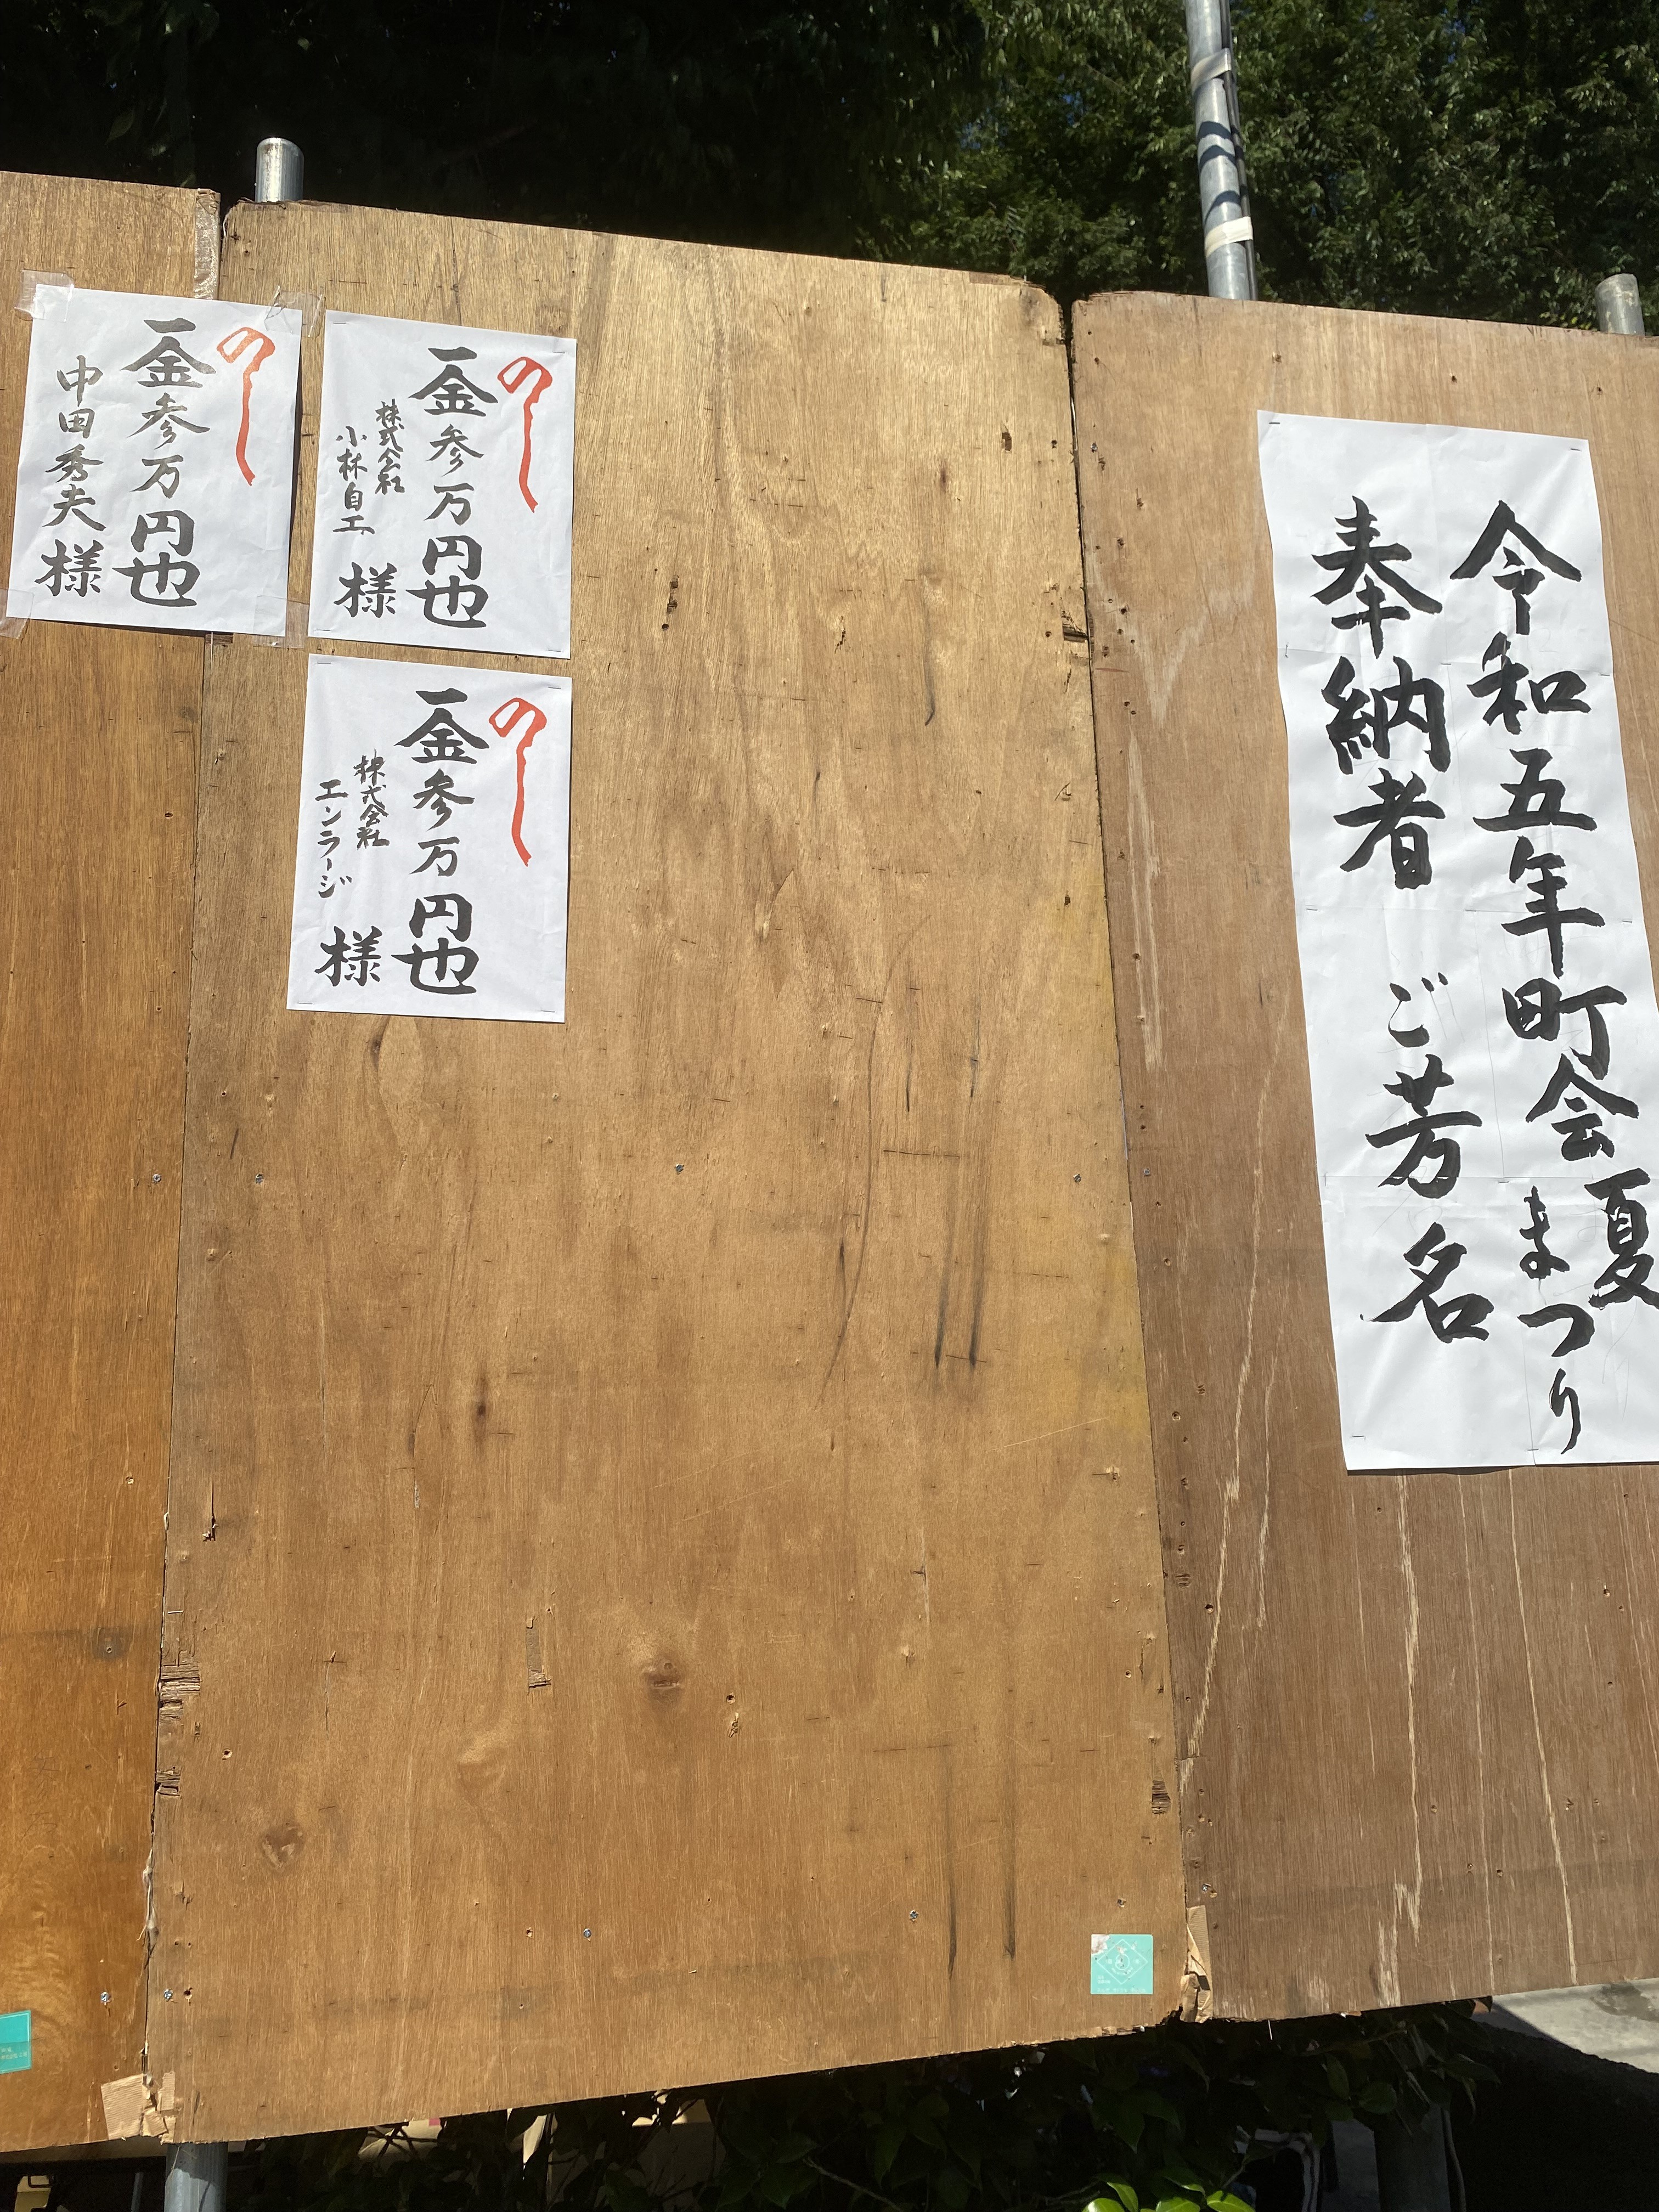 令和五年町会夏まつり
奉納者 ご芳名
のし
一金参万円也
株式会社
小林自工 様
のし
一金参万円也
株式会社
エンラージ 様
のし
一金参万円也
中田秀夫様